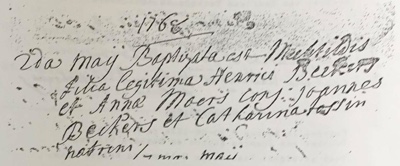 1768
2da may Baptizata est Mechtildis
filia legitima Henrici Beckers
et Annæ Moers conj: Joannes
Beckers et Catharina
patrini
maii